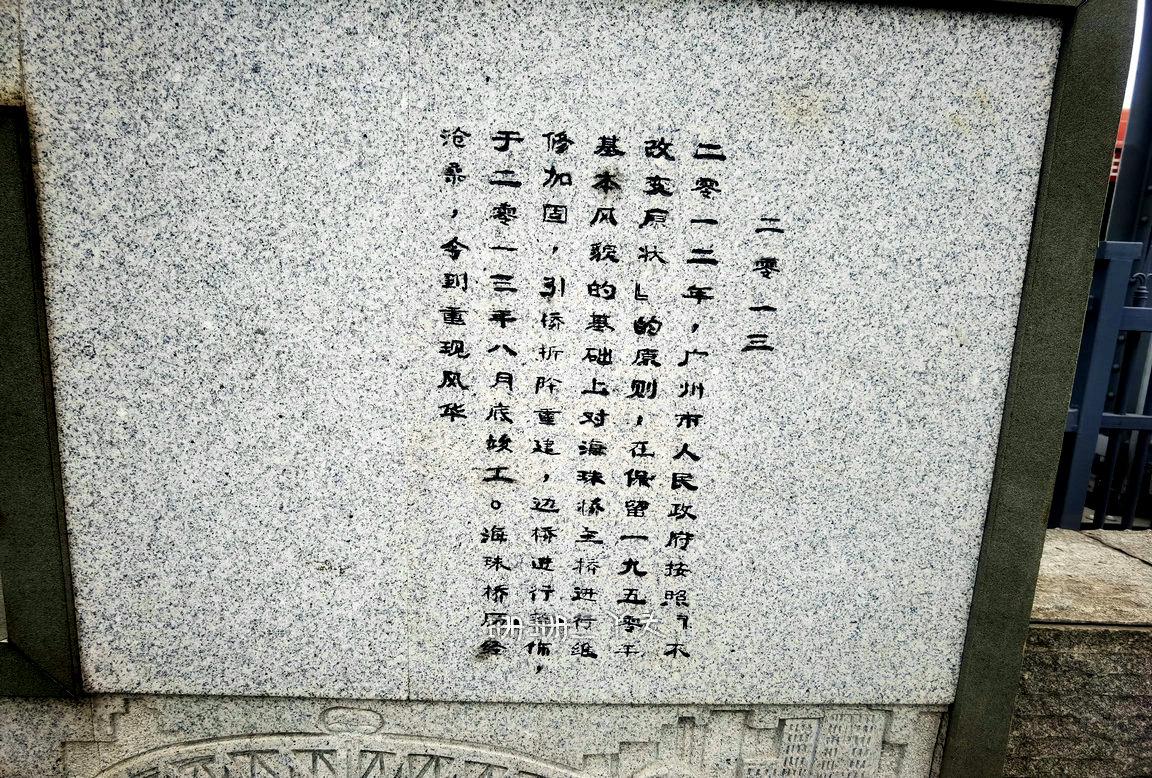 二零一三
二零一二年，广州市人民政府按照『不
改变原状』的原则，在保留一九五零年
基本风貌的基础上对海珠桥主桥进行维
修加固，引桥拆除重建，边桥进行装饰，
于二零一三年八月底竣工。海珠桥历经
沧桑，今到重现风华